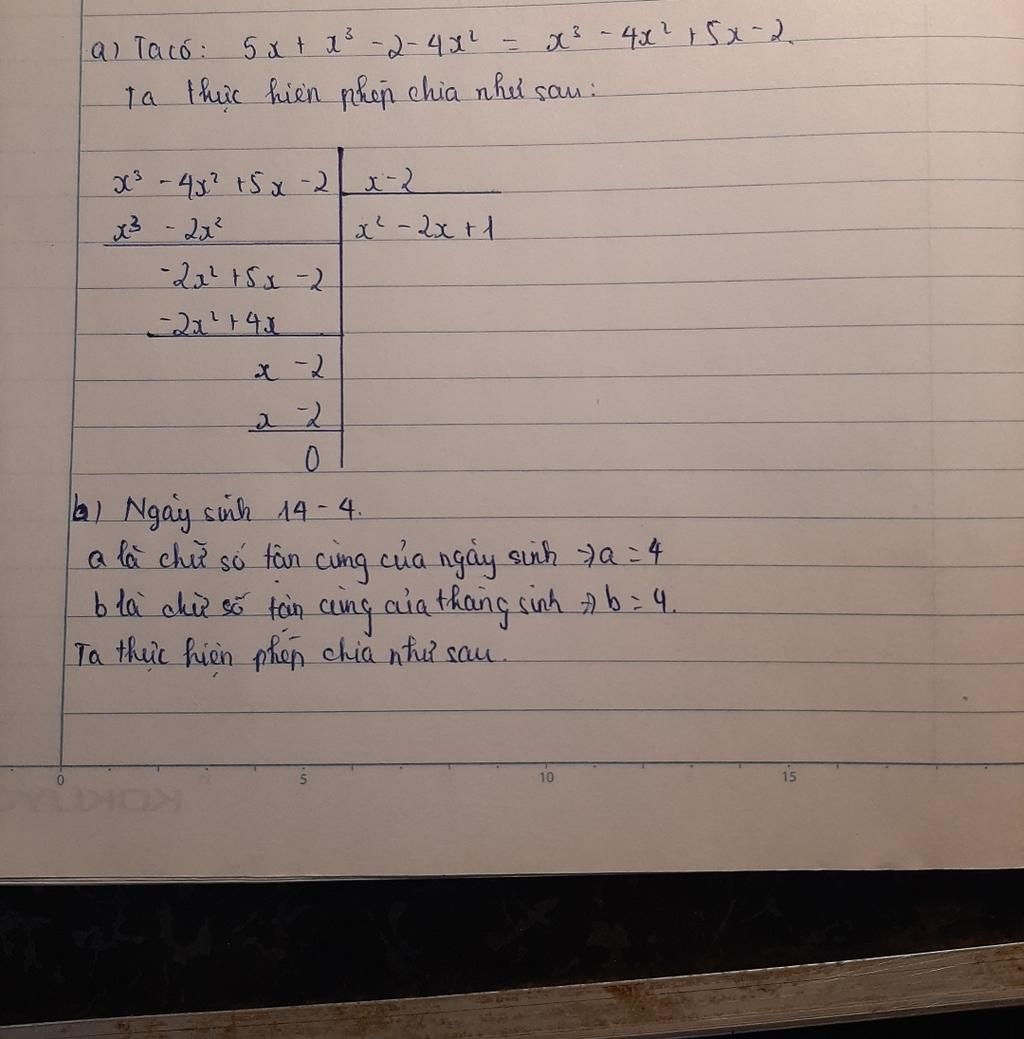 a) Ta có: 5x + x³ - 2 - 4x² = x³ - 4x² + 5x - 2.
Ta thực hiện phép chia như sau:
x³ - 4x² + 5x - 2 | x - 2
x³ - 2x² | x² - 2x + 1
-2x² + 5x - 2
-2x² + 4x
x - 2
x - 2
0
b) Ngày sinh 14 - 4.
a là chữ số tận cùng của ngày sinh → a = 4
b là chữ số tận cùng của tháng sinh → b = 4.
Ta thực hiện phép chia như sau.
0 5 10 15
KOKUYO